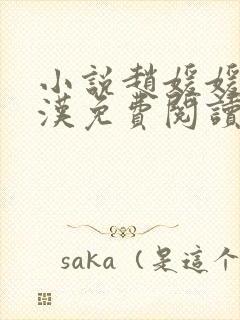 小說趙媛媛
漢免費閱讀
saka（是這个